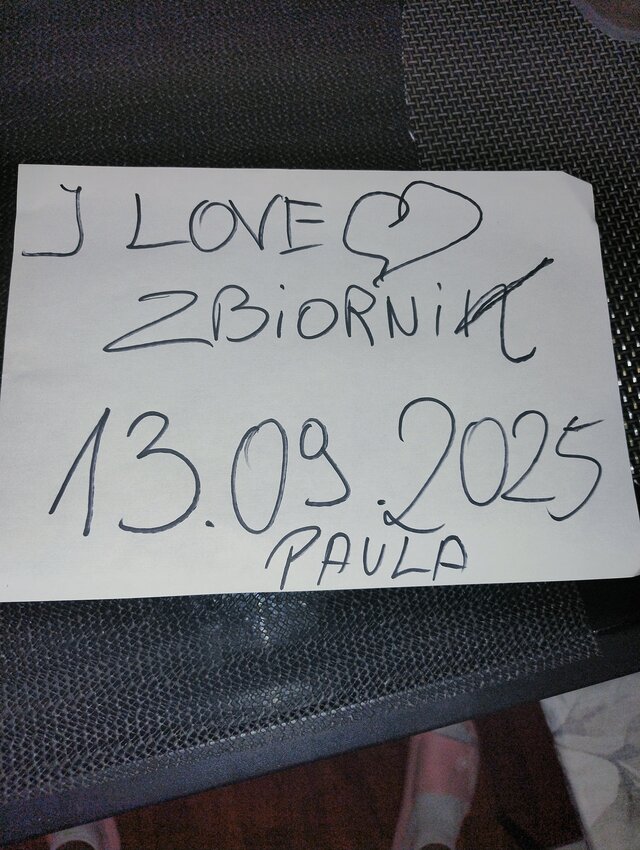 I LOVE
ZBiORNiK
13.09.2025
PAULA